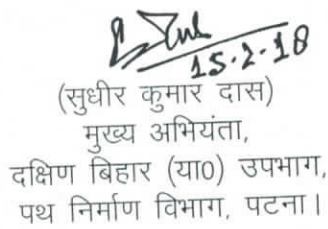 15.2.18
(सुधीर कुमार दास)
मुख्य अभियंता,
दक्षिण बिहार (या0) उपभाग,
पथ निर्माण विभाग, पटना।